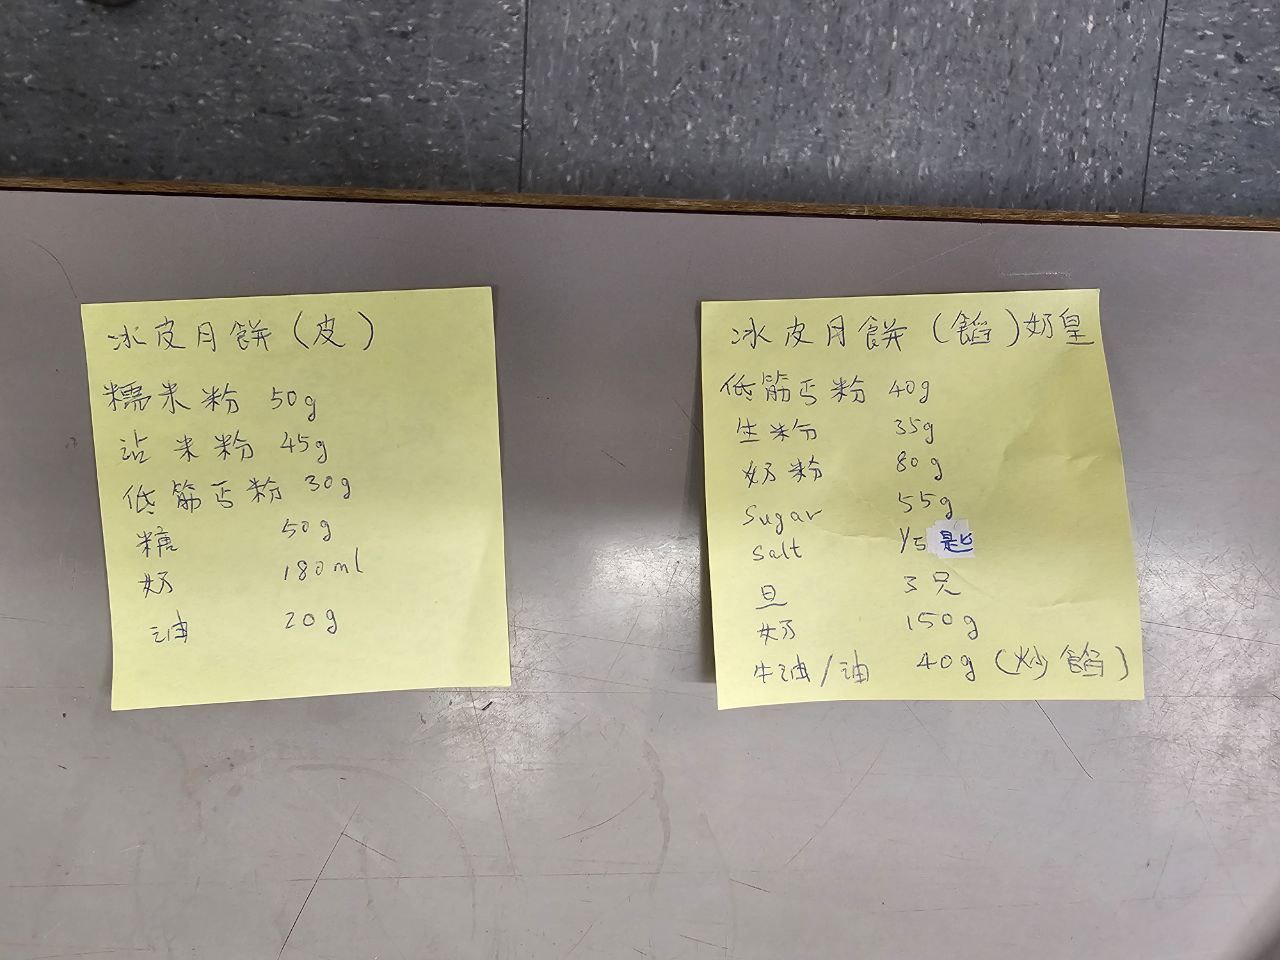 冰皮月餅(皮)
糯米粉 50g
沾米粉 45g
低筋丐粉 30g
糖 50g
奶 180ml
油 20g
冰皮月餅(餡)奶皇
低筋丐粉 40g
生粉 35g
奶粉 80g
Sugar 55g
Salt 1/5 匙
旦 3只
奶 150g
牛油/油 40g (炒餡)